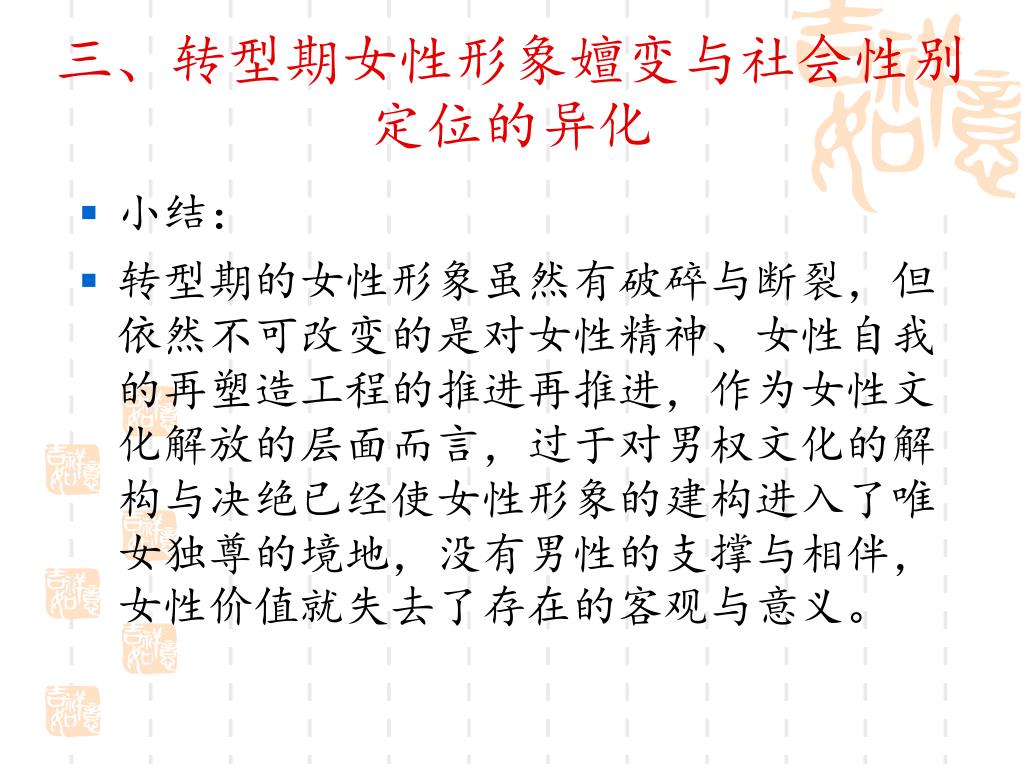 三、转型期女性形象嬗变与社会性别
定位的异化
小结：
转型期的女性形象虽然有破碎与断裂，但
依然不可改变的是对女性精神、女性自我
的再塑造工程的推进再推进，作为女性文
化解放的层面而言，过于对男权文化的解
构与决绝已经使女性形象的建构进入了唯
女独尊的境地，没有男性的支撑与相伴，
女性价值就失去了存在的客观与意义。
吉祥如意
吉祥如意
吉祥如意
吉祥如意
吉祥如意
吉祥如意
吉祥如意